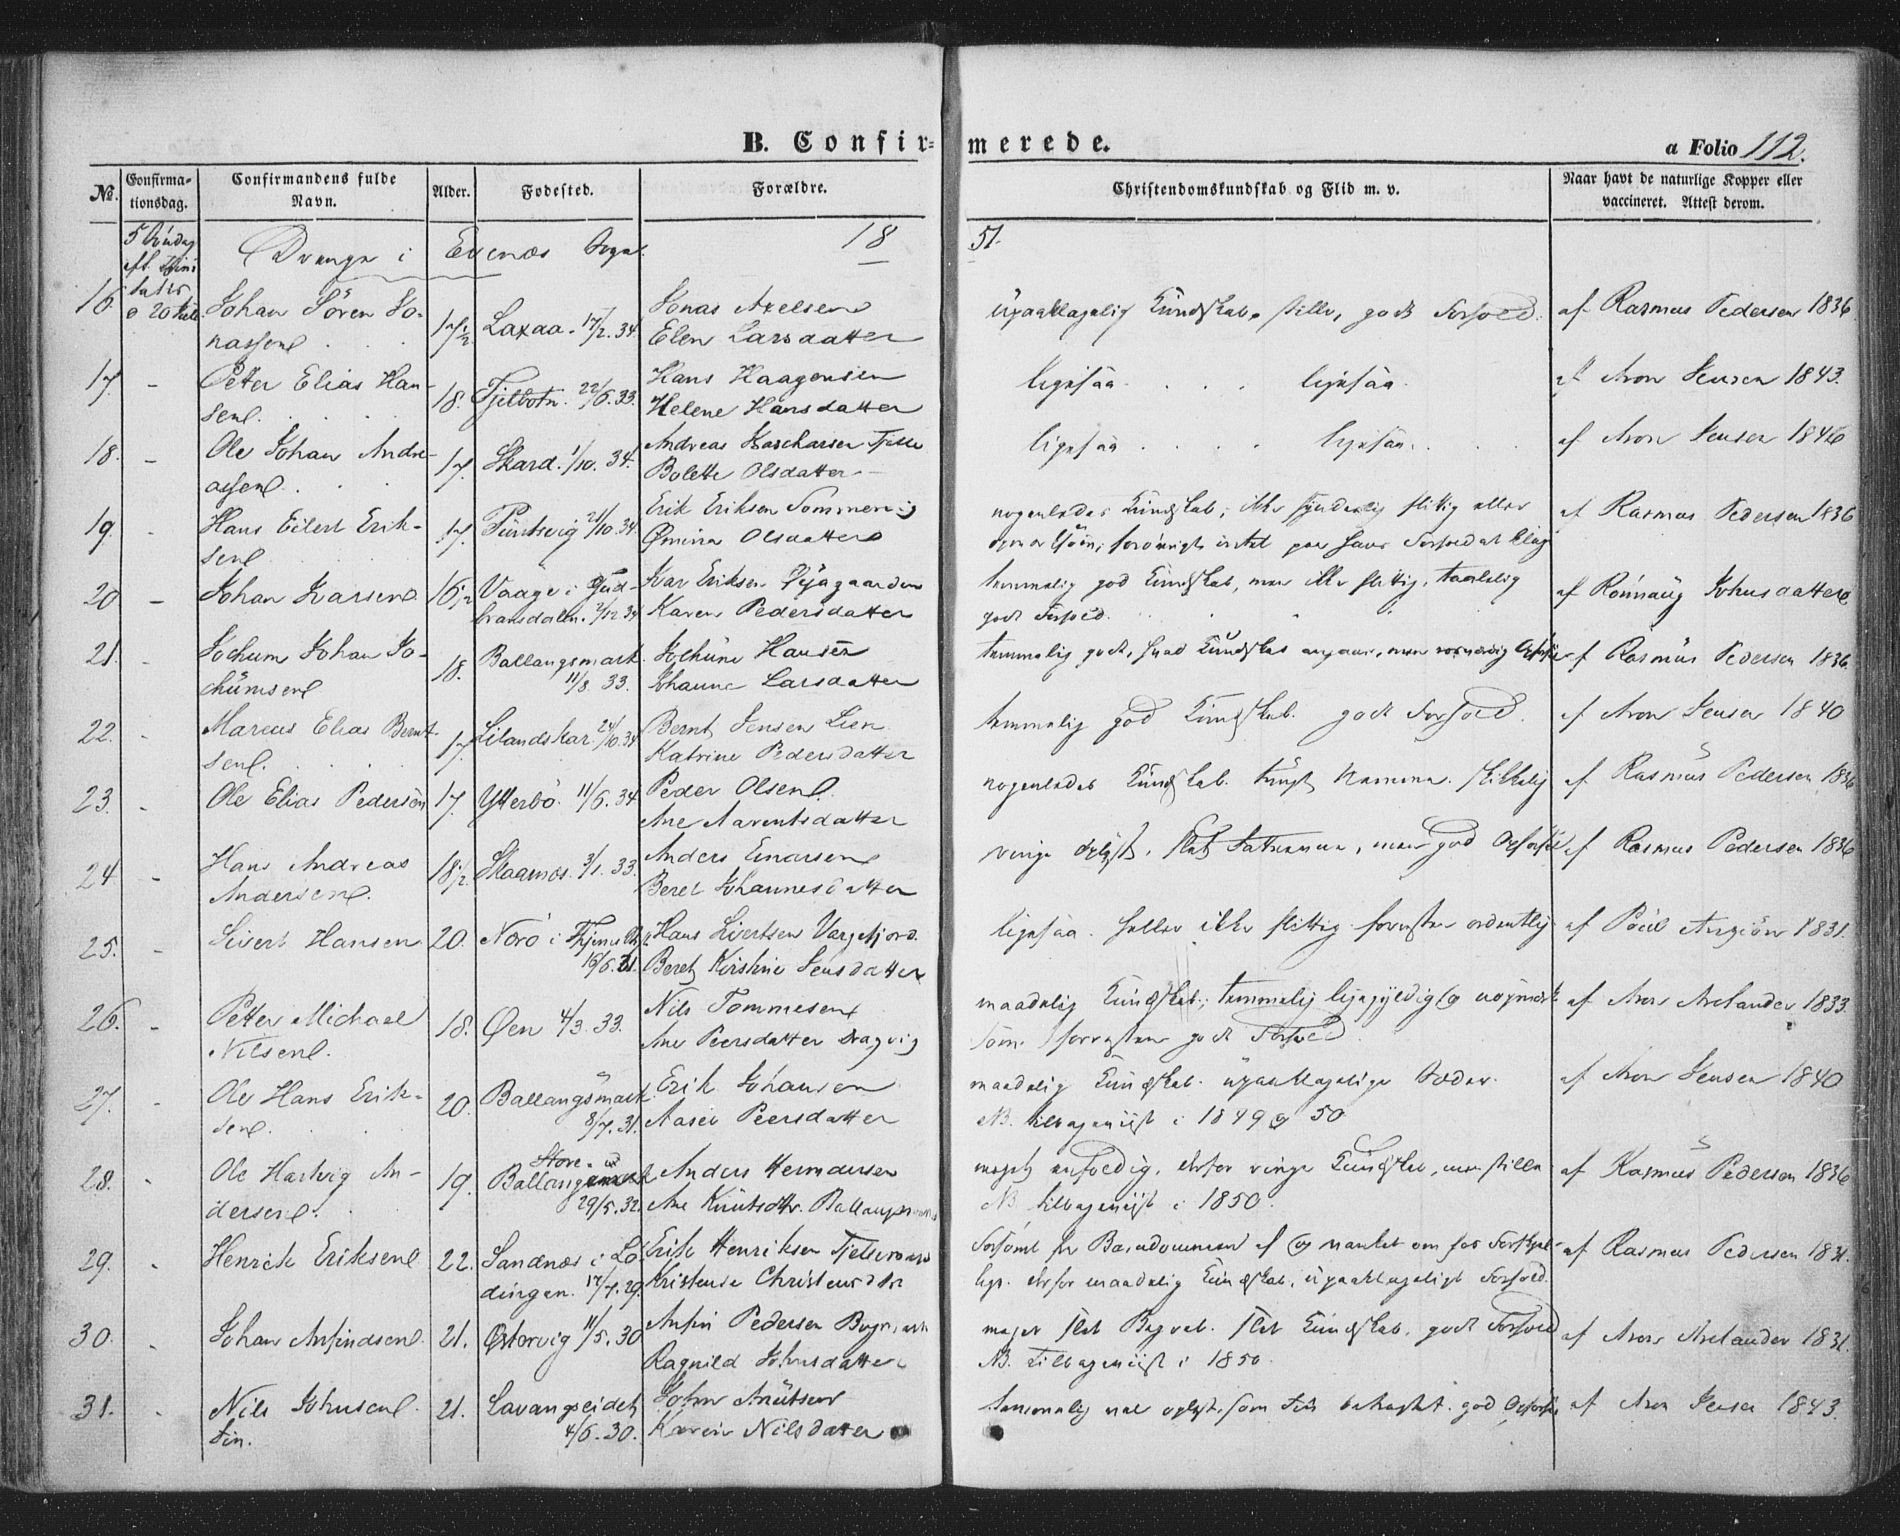 B. Confir=
merede.
a Folio 112.
No.
Confirma-
tionsdag.
Confirmandens fulde
Navn.
Alder.
Fødested.
Forældre.
Christendomskundskab og Flid m. v.
Naar havt de naturlige Kopper eller
vaccineret. Attest derom.
5 Søndag
eft. Trini
tatis
20 Juli
Drenge i Evenæs Sogn.
18
51.
16. Johan Sören Jo-
nassen
17 1/2
Laxaa. 17/2. 34.
Jonas Axelsen
Elen Larsdatter
upaaklagelig Kundskab, stille, godt Forhold.
af Rasmus Pedersen 1836
17. - Peter Elias Han-
sen.
18.
Fjelbotn. 22/6. 33.
Hans Haagensen
Helene Hansdatter
ligesaa. ligesaa.
af Aron Jensen 1843.
18. - Ole Johan Andre-
assen.
17
Skard. 1/10. 34.
Andreas Zachariasen
Bolette Olsdatter
ligesaa ligesaa.
af Aron Jensen 1846
19 - Hans Eilert Erik-
sen
17.
21/10. 34
Erik Eriksen Sommervig
Ømina Olsdatter
nogenledes Kundskab; ikke synderlig flittig eller
af Rasmus Pedersen 1836
20 - Johan Ivarsen.
16 1/2
Vaage i Gud-
bransdalen. 2/12 34
Ivar Eriksen
Karen Pedersdatter
temmelig god Kundskab, men ikke flittig, taalelig
godt Forhold.
af Rönnaug Johnsdatter
21. - Jochum Johan Jo-
chumsen
18.
Ballangsmark.
11/8 33.
Jochum Hansen
Johanna Larsdatter
temmelig godt, hvad Kundskab angaaer, men
af Rasmus Pedersen 1836
22. - Marcus Elias Bernt-
sen.
17
Lilandskar 24/10. 34
Bernt Jensen Lien
Katrine Pedersdatter
temmelig god Kundskab. godt Forhold.
af Aron Jensen 1840
23. - Ole Elias Pedersen
17.
Ytterbö. 11/6. 34
Peder Olsen.
Ane Aarentsdatter
nogenledes Kundskab. tungt Nemme. skikkelig
af Rasmus Pedersen 1836
24 - Hans Andreas
Andersen.
18 1/2
Skaanes. 3/1. 33.
Anders Einarsen
Beret Johannesdatter
ringe oplyst, slet Fatteevne, men god Opførsel
af Rasmus Pedersen 1836
25. - Sivert Hansen
20.
Norö i
16/6. 31.
Hans Sivertsen Vargefjord.
Beret Kirstine Jensdatter
ligesaa. heller ikke flittig. forresten ordentlig
af Poul 1831.
26. - Peter Michael
Nilsen.
18.
Øen 4/3. 33.
Nils Tommesen
Ane Peersdatter Dragvig
maadelig Kundskab; temmelig ligegyldig og uopmærk-
som. forresten godt Forhold.
af Aron Arelander 1833.
27. - Ole Hans Erik-
sen.
20.
Ballangsmark.
8/7. 31.
Erik Johansen
Aasel Peersdatter
maadelig Kundskab. upaaklagelige Sæder.
NB. tilbageviist i 1849 og 50
af Aron Jensen 1840
28. - Ole Hartvig An-
dersen.
19.
Store-
Ballangen
29/5. 32.
Anders Hemdersen
Ane Knutsdtr.
meget enfoldig, derfor ringe Kundskab, men stille
NB tilbageviist i 1850.
af Rasmus Pedersen 1836
29. - Henrik Eriksen
22.
Sandnæs i Lö-
dingen. 17/7. 29.
Erik Henriksen
Kristense Christensdtr
Forsömt fra Barndommen af og vanket om for
derfor maadelig Kundskab, upaaklageligt Forhold.
af Rasmus Pedersen 1831.
30. - Johan Anfindsen.
21.
Østervig 11/5. 30
Anfin Pedersen
Ragnild Johnsdatter
meget slet Begreb. slet Kundskab, godt Forhold
NB. tilbageviist i 1850.
af Aron Arelander 1831.
31. - Nils Johnsen.
Fin.
21.
Lavangseidet
4/6. 30.
John Knutsen
Karen Nilsdatter
temmelig vel oplyst, som Fin betragtet. god Opførsel
af Aron Jensen 1843.